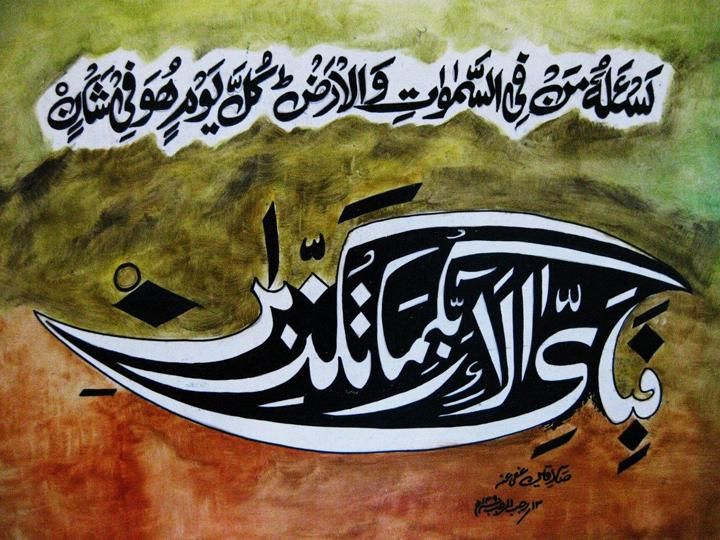 يَسْـَٔلُهٗ مَنْ فِي السَّمٰوٰتِ وَالْاَرْضِ ؕ كُلَّ يَوْمٍ هُوَ فِيْ شَاْنٍ
فَبِاَيِّ اٰلَآءِ رَبِّكُمَا تُكَذِّبٰنِ
عفی عنہ